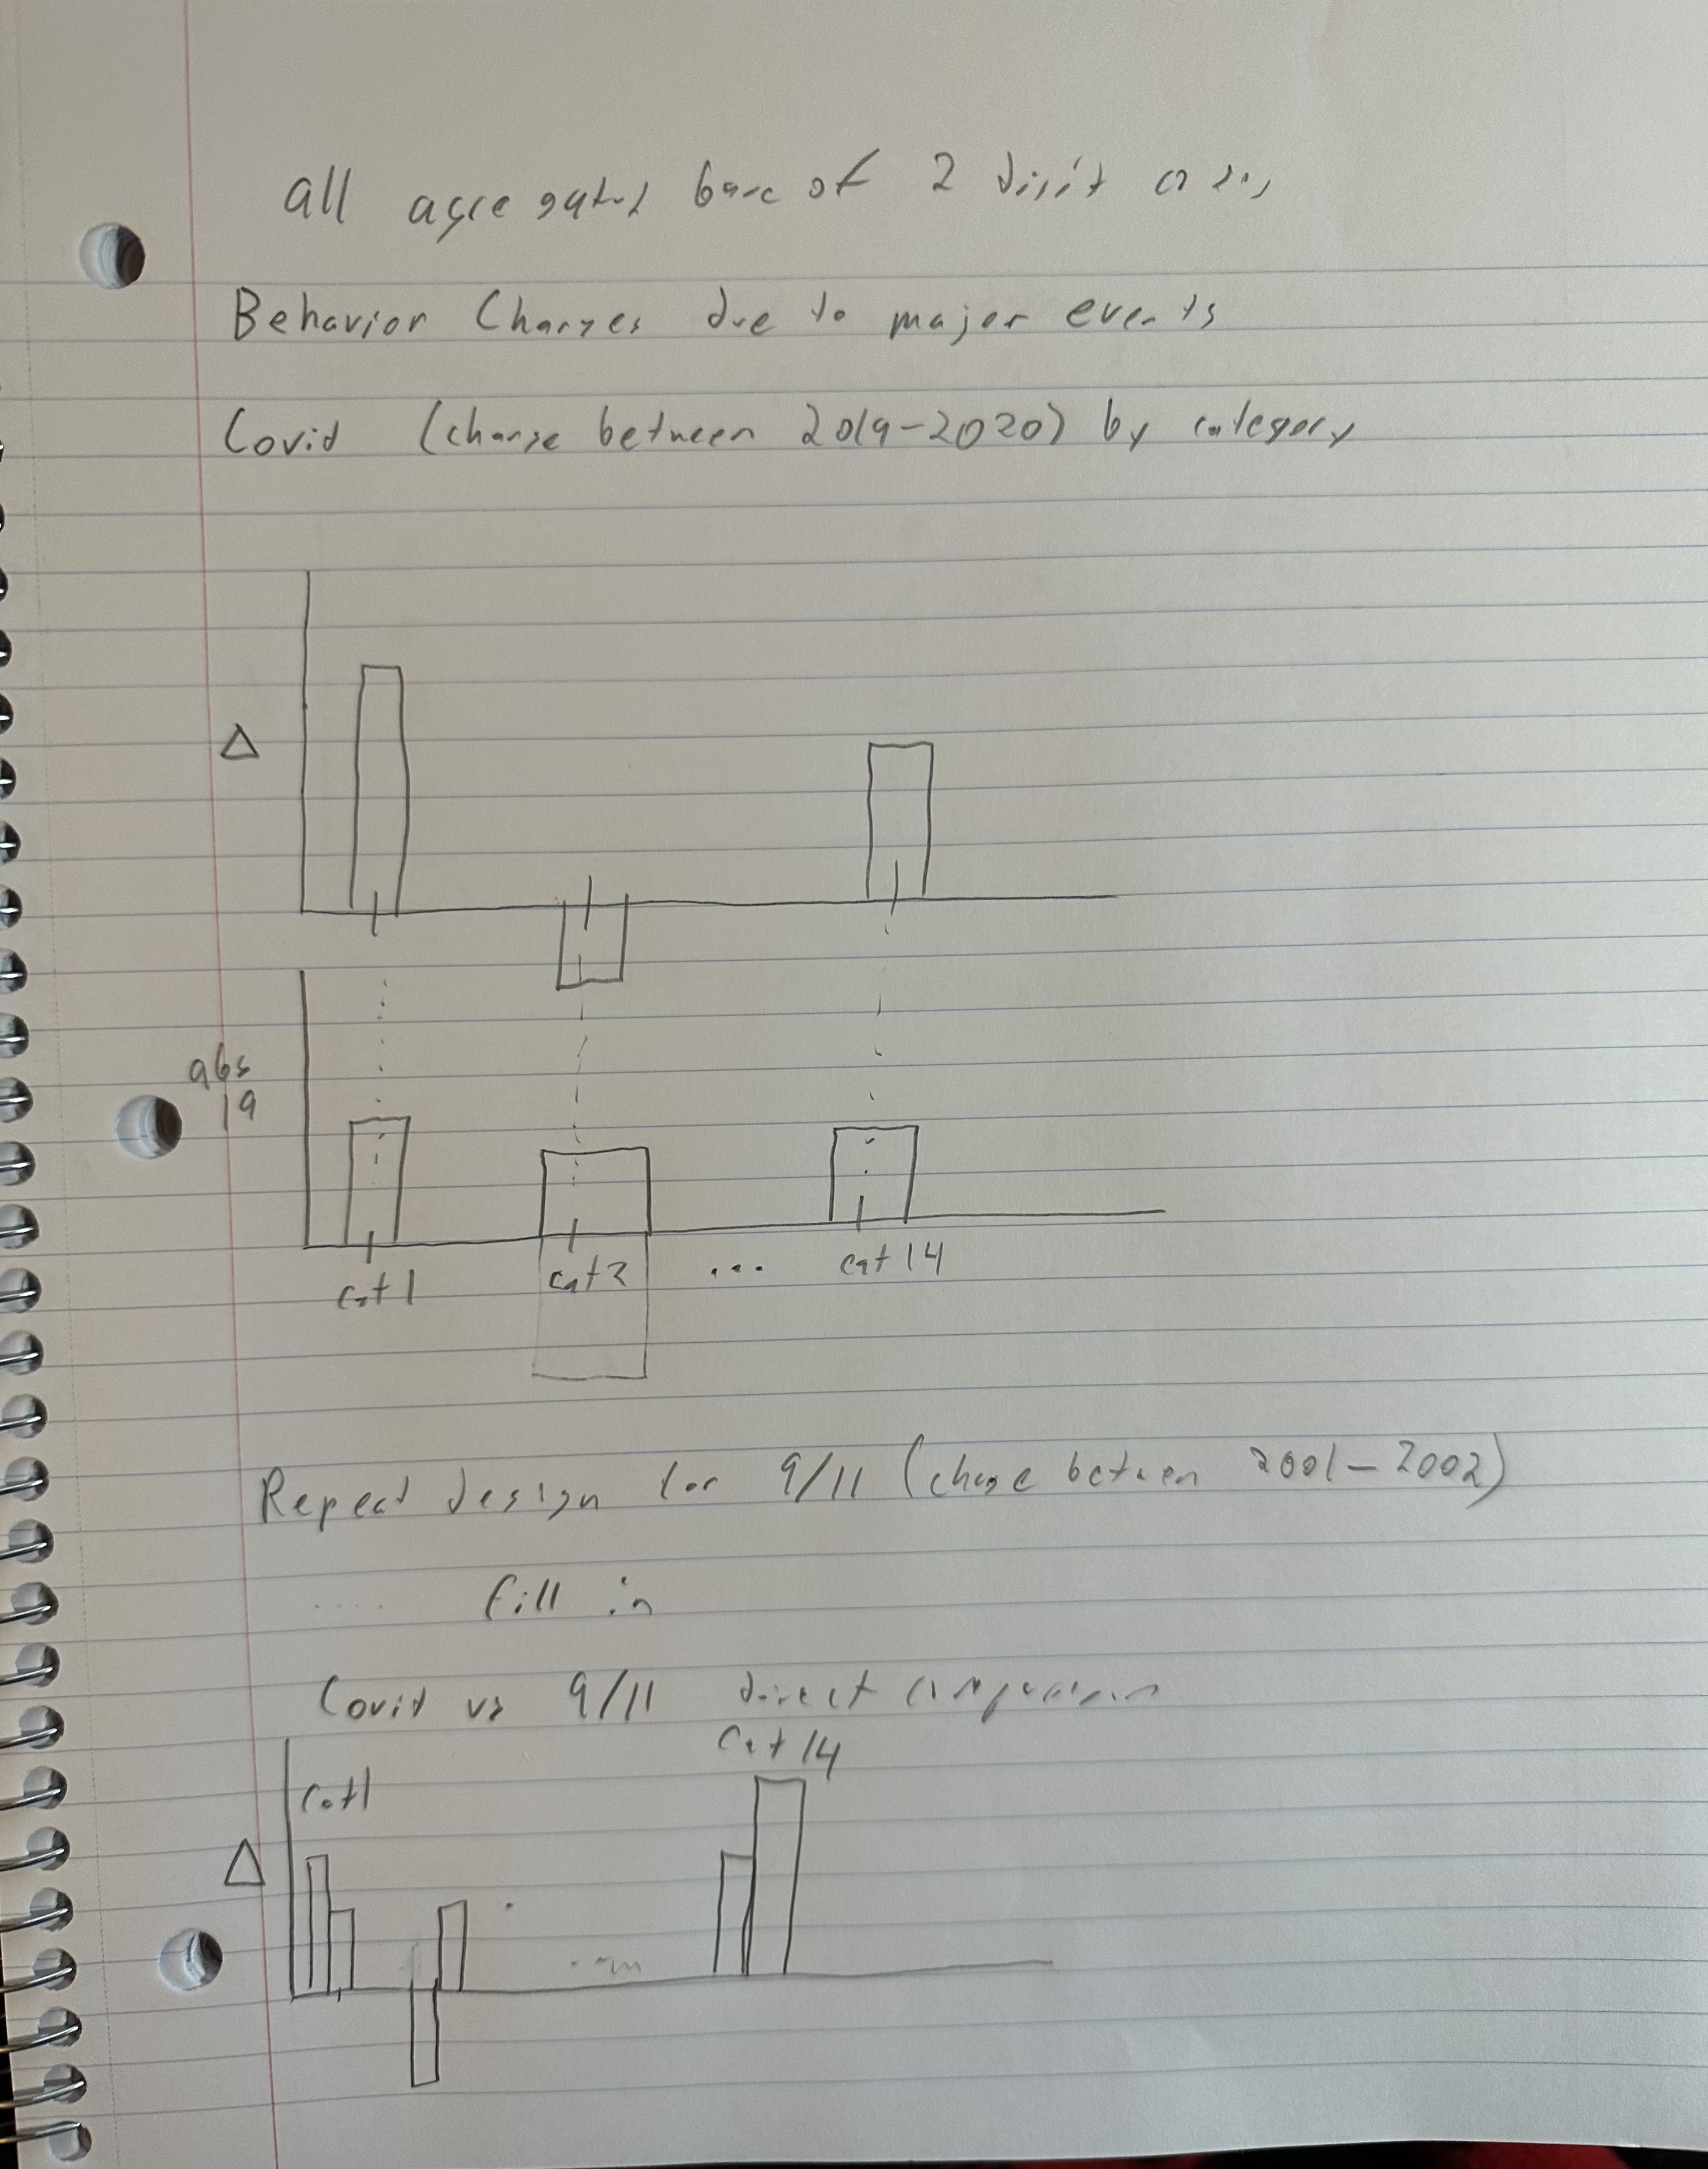 all aggregated base of 2 digit codes
Behavior Changes due to major events
Covid (change between 2019-2020) by category
Δ
abs
19
cat 1 cat 2 ... cat 14
Repeat design for 9/11 (change between 2001-2002)
.... fill in
Covid vs 9/11 direct comparison
cat 14
cat 1
Δ